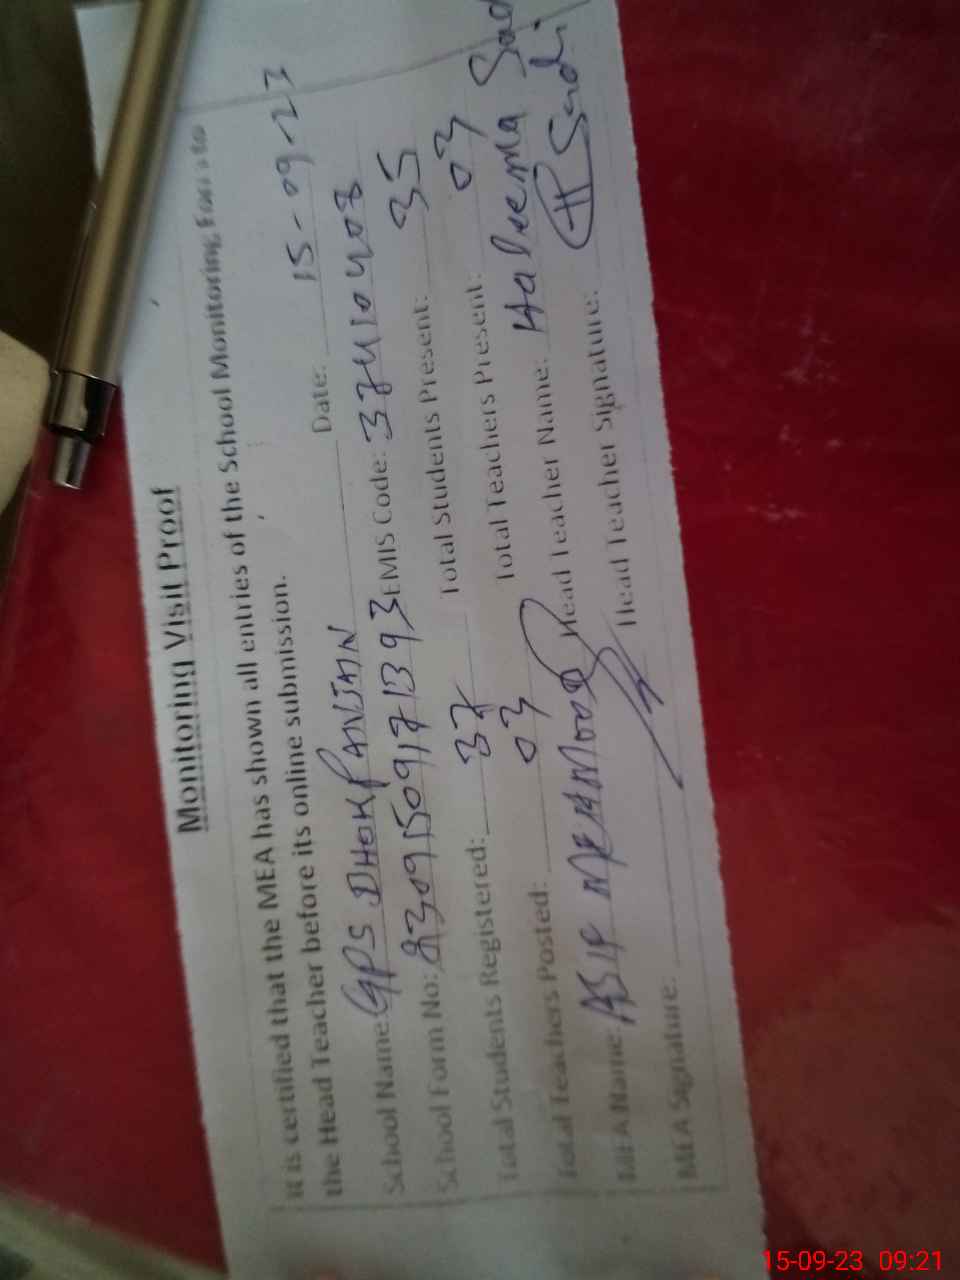 Monitoring Visit Proof
It is certified that the MEA has shown all entries of the School Monitoring Form to
the Head Teacher before its online submission.
School Name: GPS DHOK PANJAN Date: 15-09-23
School Form No: 23091509171393 EMIS Code: 37410408
Total Students Registered: 37 Total Students Present: 35
Total Teachers Posted: 03 Total Teachers Present: 03
MEA Name: ASIF MEHMOOD Head Teacher Name: Haleema
MEA Signature: Head Teacher Signature:
15-09-23 09:21